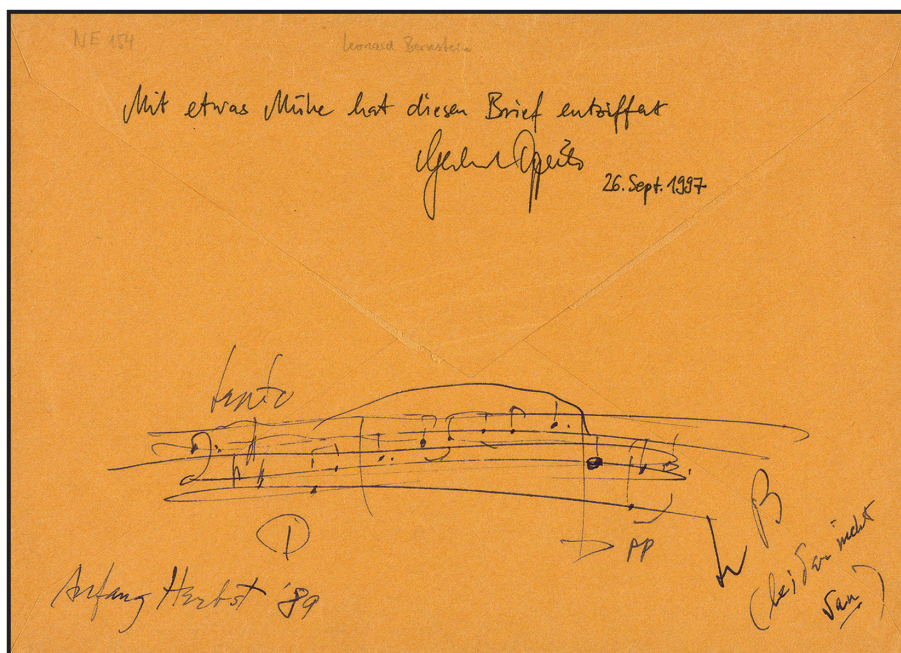 NE 154
Leonard Bernstein
Mit etwas Mühe hat diesen Brief entziffert
Gerhard Oppitz
26. Sept. 1997
lento
pp
LB
(leider nicht
Anfang Herbst '89